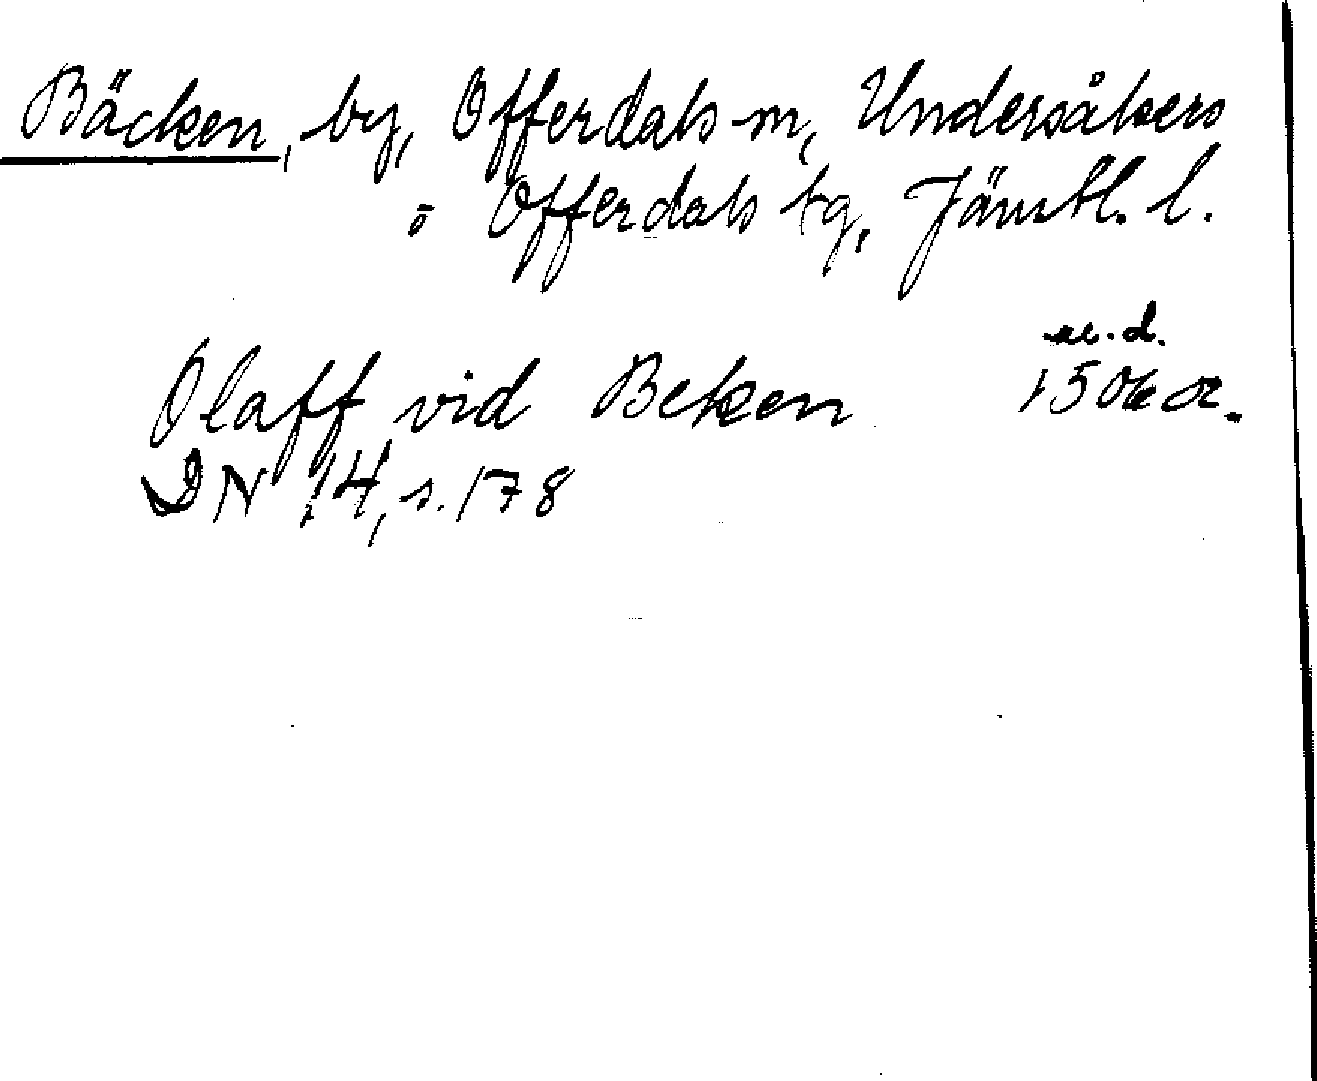 Bäcken, by, Offerdals sn, Undersåkers
o Offerdals tg, Jämtl. l.
u.d.
Olaff vid Beken 1506
DN 14, s. 178